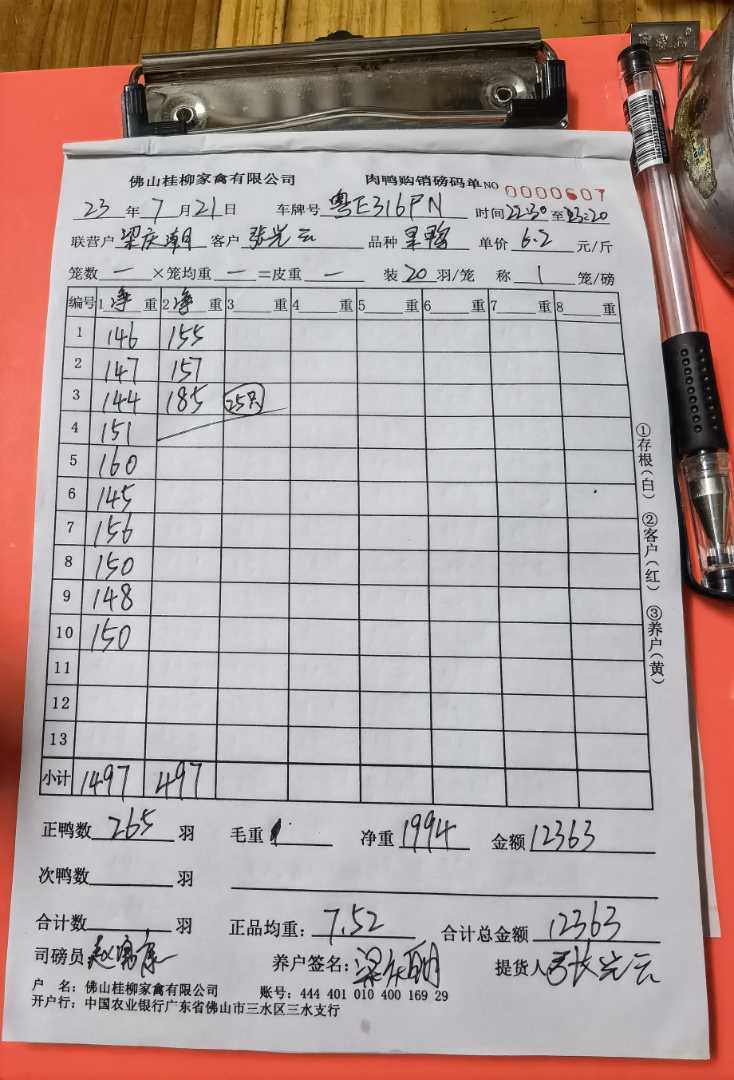 佛山桂柳家禽有限公司 肉鸭购销磅码单 NO 0000607
23 年 7 月 21 日 车牌号 粤E316PN 时间 22:30 至 23:20
联营户 梁庆潮 客户 张光云 品种 单价 6.2 元/斤
笼数 一 ×笼均重 一 =皮重 一 装 20 羽/笼 称 1 笼/磅
编号 1 净 重 2 净 重 3 重 4 重 5 重 6 重 7 重 8 重
1 146 155
2 147 157
3 144 185 25只
4 151
5 160
6 145
7 156
8 150
9 148
10 150
11
12
13
小计 1497 497
正鸭数 265 羽 毛重 净重 1994 金额 12363
次鸭数 羽
合计数 羽 正品均重: 7.52 合计总金额 12363
司磅员 养户签名: 提货人 张光云
户 名: 佛山桂柳家禽有限公司 账号: 444 401 010 400 169 29
开户行: 中国农业银行广东省佛山市三水区三水支行
①存根(白) ②客户(红) ③养户(黄)